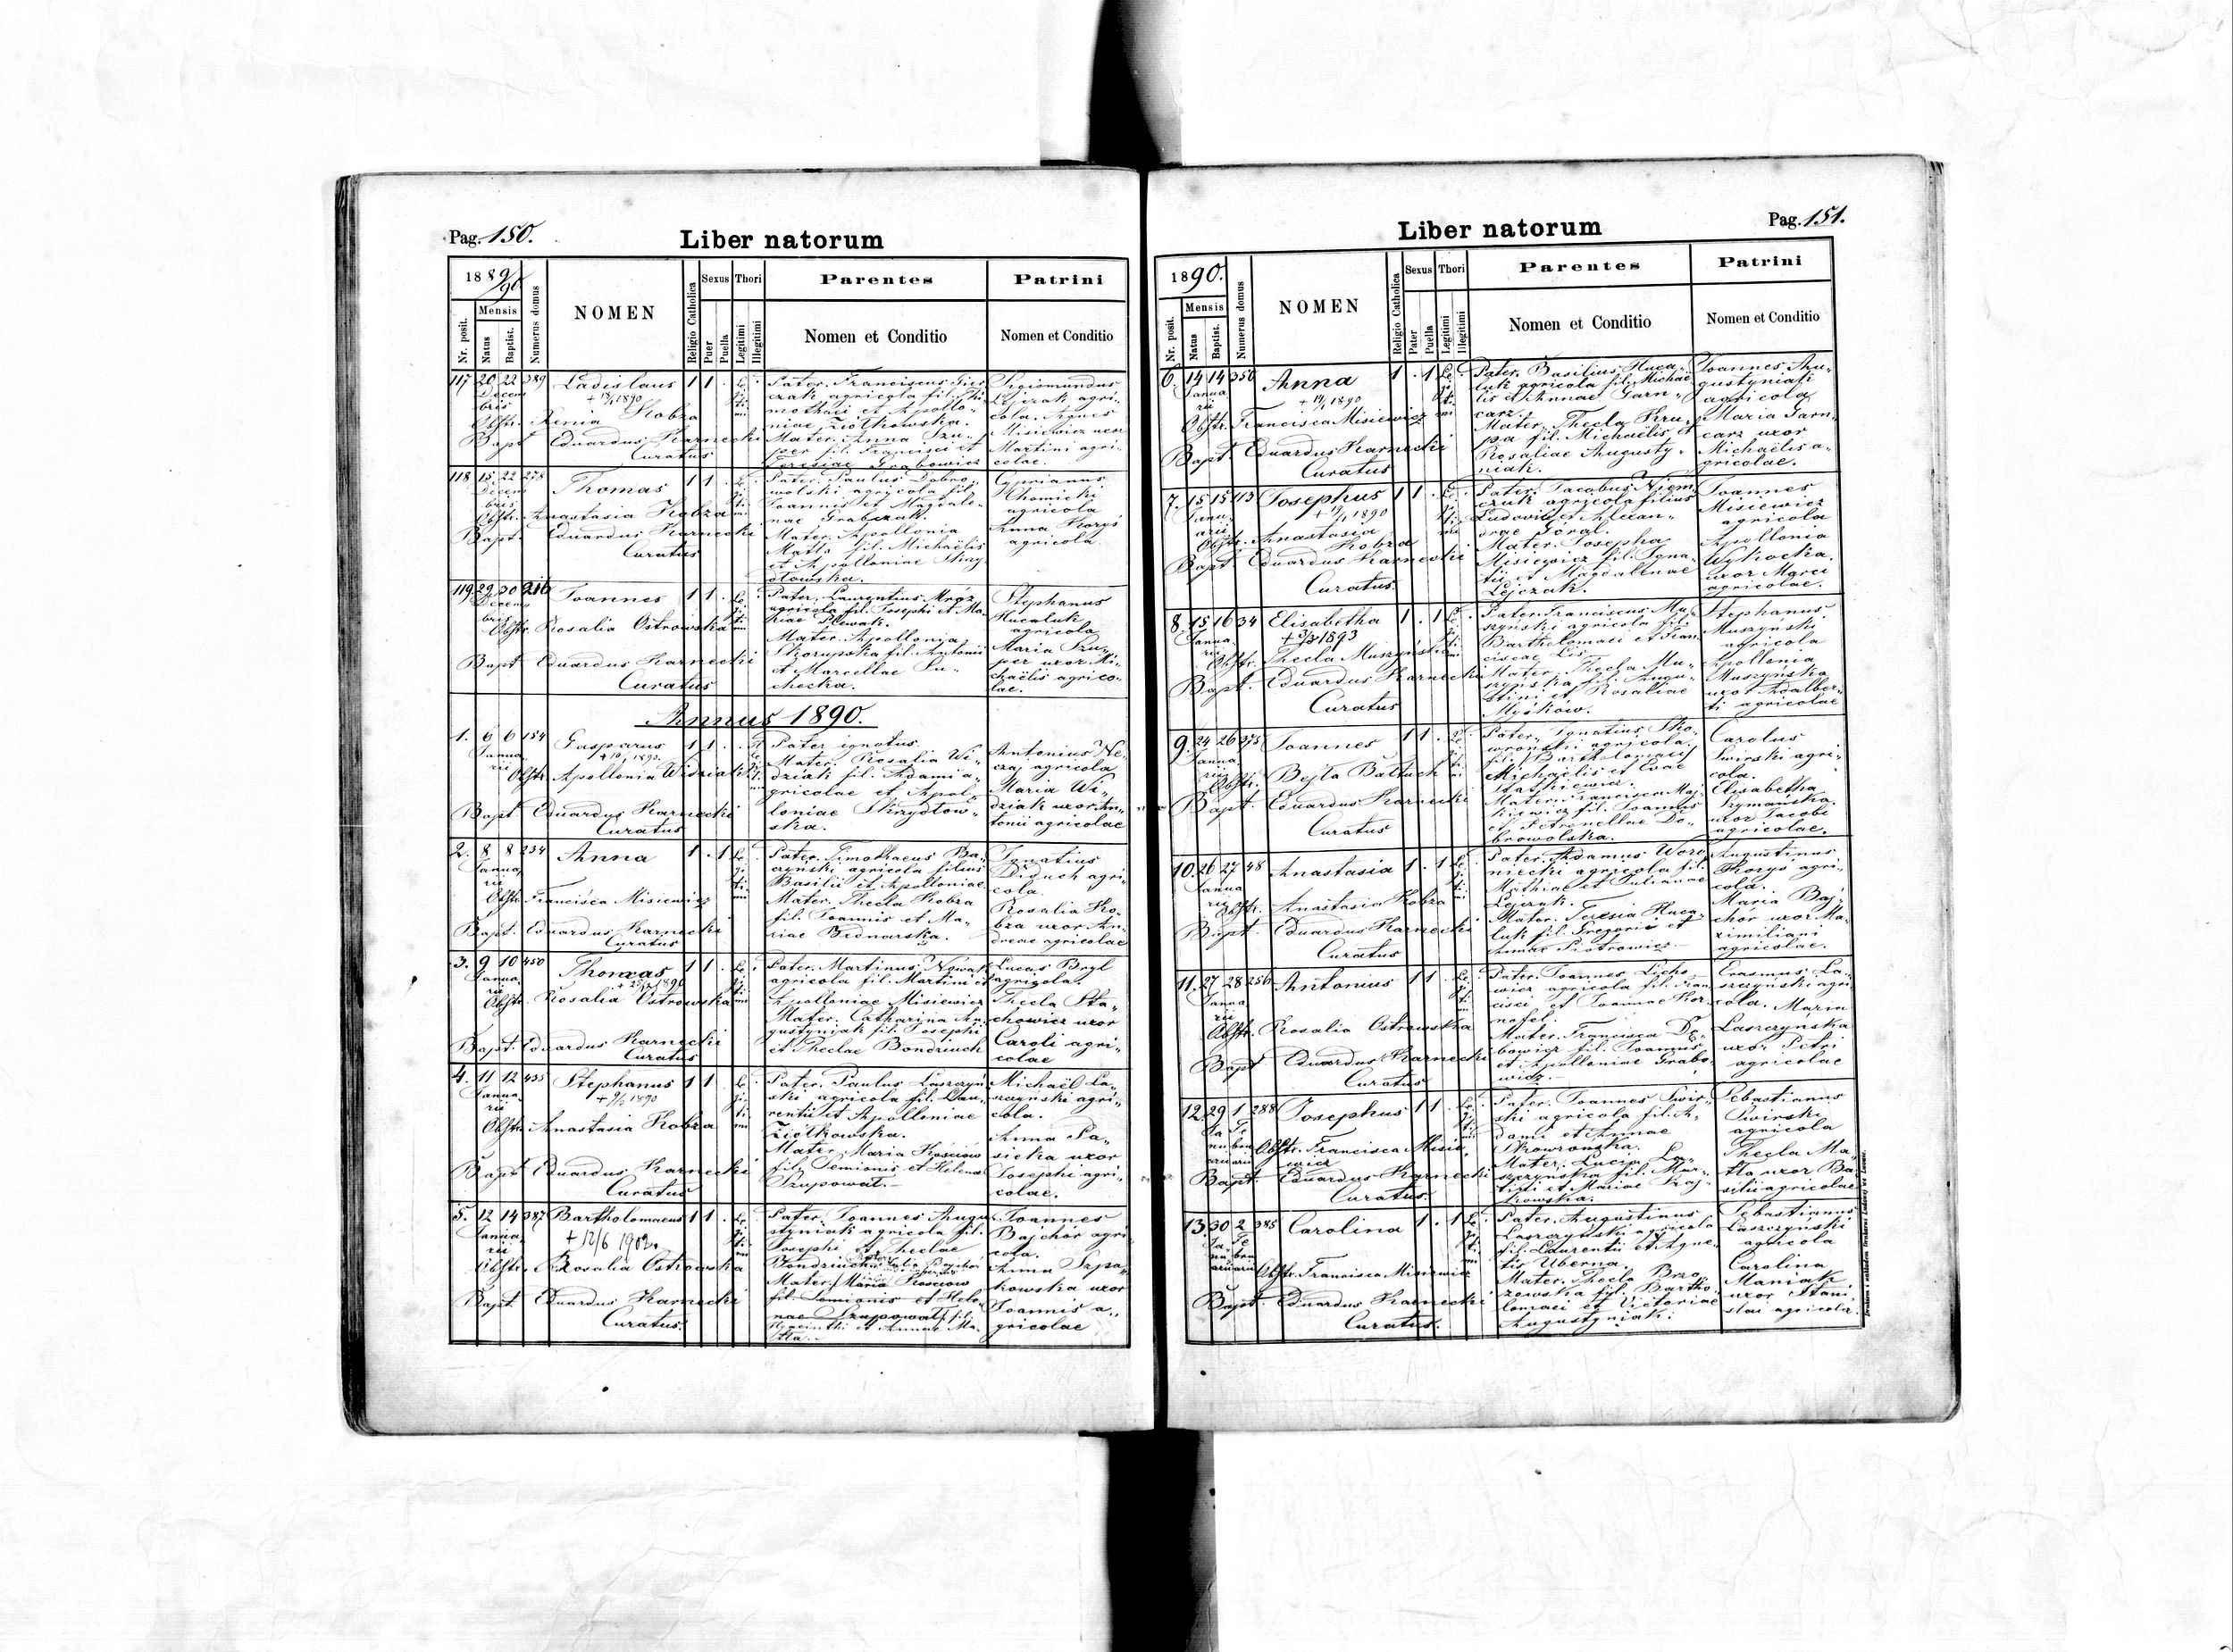 Pag. 150.
Liber natorum
1889/90
Mensis
Nr. posit.
Natus
Baptist.
Numerus domus
NOMEN
Religio Catholica
Sexus
Puer
Puella
Thori
Legitimi
Illegitimi
Parentes
Nomen et Conditio
Patrini
Nomen et Conditio
117 20 22 389 Ladislaus 1 1 .
Decem
bris
Obstr. Xenia Kobza
Bapt. Eduardus Karnecki
Curatus
Pater. Franciscus
czak agricola fil. Thi-
mothaei et Apollo-
niae Ziółkowska.
Mater. Anna Szu-
per fil. Francisci et
Teresiae Grabowicz
Sigismundus
Lejczak agri-
cola. Agnes
Misiewicz uxor
Martini agri-
colae.
118 15 22 278 Thomas 1 1 .
Decem
bris
Obstr. Anastasia Kobza
Bapt. Eduardus Karnecki
Curatus
Pater. Paulus Dobro-
wolski agricola fil.
Joannis et Magdale-
nae Grabczak.
Mater. Apollonia
Matła fil. Michaëlis
et Apolloniae Skrzy
dłowska.
Cyprianus
Chomicki
agricola
Anna Koryś
agricola
119 29 30 216 Joannes 1 1 .
Decem
bris
Obstr. Rosalia Ostrowska
Bapt. Eduardus Karnecki
Curatus
Pater. Laurentius Mróz
agricola fil. Josephi et Ma-
riae Plewak.
Mater. Apollonia
Skorupska fil. Antonii
et Marcellae Su-
checka.
Stephanus
Hucaluk
agricola
Maria Szu-
per uxor Mi-
chaëlis agrico-
lae.
Annus 1890.
1. 6 6 154 Gasparus 1 1 .
Janua
rii
Obstr. Apollonia Widziak
Bapt. Eduardus Karnecki
Curatus
Pater ignotus
Mater. Rosalia Wi-
dziak fil. Adami a-
gricolae et Apol-
loniae Skrzydłow-
ska.
Antonius Ne-
czaj agricola
Maria Wi-
dziak uxor An-
tonii agricolae
2. 8 8 234 Anna 1 . 1
Janua
rii
Obstr. Francisca Misiewicz
Bapt. Eduardus Karnecki
Curatus
Pater. Timothaeus Ba-
czyński agricola filius
Basilii et Apolloniae
Mater. Thecla Kobza
fil. Joannis et Ma-
riae Bednarska.
Ignatius
Diduch agri-
cola.
Rosalia Ko-
bza uxor An-
dreae agricolae
3. 9 10 450 Thomas 1 1 .
Janua
rii
Obstr. Rosalia Ostrowska
Bapt. Eduardus Karnecki
Curatus
Pater. Martinus Nowak
agricola fil. Martini et
Apolloniae Misiewicz
Mater. Catharina Au-
gustyniak fil. Josephi
et Theclae Bondziuch
Lucas Brył
agricola.
Thecla Sta-
chowicz uxor
Caroli agri-
colae
4. 11 12 435 Stephanus 1 1
Janua
rii
Obstr. Anastasia Kobza
Bapt. Eduardus Karnecki
Curatus
Pater. Paulus Łaszczyń
ski agricola fil. Lau-
rentii et Apolloniae
Ziółkowska.
Mater. Maria Kościow
fil. Semionis et Helenae
Szupował.
Michaël Ła-
szczyński agri-
cola.
Anna Pa-
sieka uxor
Josephi agri-
colae.
5. 12 14 387 Bartholomaeus 1 1 .
Janua
rii
+ 12/6 1902.
Obstr. Rosalia Ostrowska
Bapt. Eduardus Karnecki
Curatus.
Pater. Joannes Augu
styniak agricola fil.
Josephi et Theclae
Bondziuch
Mater. Maria Kościow
fil. Semionis et Hele
nae Szupował fil.
Hyacinthi et Annae Ma-
tła.
Joannes
Bajchór agri
cola.
Anna Szpa-
kowska uxor
Joannis a-
gricolae
Pag. 151.
Liber natorum
1890.
Mensis
Nr. posit.
Natus
Baptist.
Numerus domus
NOMEN
Religio Catholica
Sexus
Pater
Puella
Thori
Legitimi
Illegitimi
Parentes
Nomen et Conditio
Patrini
Nomen et Conditio
6. 14 14 356 Anna 1 . 1
Janua
rii
Obstr. Francisca Misiewicz
Bapt. Eduardus Karnecki
Curatus
Pater. Basilius Huca-
luk agricola fil. Michaë
lis et Annae Garn-
carz.
Mater. Thecla Kru-
pa fil. Michaëlis et
Rosaliae Augusty-
niak.
Joannes Au-
gustyniak
agricola
Maria Garn-
carz uxor
Michaëlis a-
gricolae.
7. 15 15 113 Josephus 1 1 .
Janu
arii
Obstr. Anastasia
Kobza
Bapt. Eduardus Karnecki
Curatus.
Pater. Jacobus Niem
czuk agricola filius
Ludovici et Alexan-
drae Góral.
Mater. Josepha
Misiewicz fil. Igna-
tii et Magdalenae
Lejczak.
Joannes
Misiewicz
agricola
Apollonia
Wykocka
uxor Marci
agricolae.
8. 15 16 34 Elisabetha 1 . 1
Janua
rii
Obstr. Thecla Muszyńska
Bapt. Eduardus Karnecki
Curatus
Pater. Franciscus Mu-
szyński agricola fil.
Bartholomaei et Fran
ciscae Lis
Mater. Thecla Mu-
szyńska fil. Augu-
stini et Rosaliae
Myśków.
Stephanus
Muszyński
agricola
Apollonia
Muszyńska
uxor Adalber-
ti agricolae
9. 24 26 375 Joannes 1 1 .
Janua
rii
Obstr. Bejła Bałtuch
Bapt. Eduardus Karnecki
Curatus
Pater. Ignatius Sko-
wroński agricola.
Michaëlis et Evae
Staśkiewicz.
Mater. Francisca Maj-
kiewicz fil. Joannis
et Petronellae Do-
browolska.
Carolus
Świrski agri-
cola.
Elisabetha
Szymańska
uxor Jacobi
agricolae.
10. 26 27 48 Anastasia 1 . 1
Janua
rii
Obstr. Anastasia Kobza
Bapt. Eduardus Karnecki
Curatus
Pater. Adamus Woro
niecki agricola fil.
Mathiae et Julianae
Lejczak.
Mater. Teresia Huca-
luk fil. Gregorii et
Annae Piotrowicz.
Augustinus
Koryś agri-
cola.
Maria Baj-
chór uxor Ma-
ximiliani
agricolae.
11. 27 28 256 Antonius 1 1 .
Janua
rii
Obstr. Rosalia Ostrowska
Bapt. Eduardus Karnecki
Curatus
Pater. Joannes Licho
wicz agricola fil. Fran
cisci et Joannae Kor-
nafel.
Mater. Francisca Dę-
bowicz fil. Joannis
et Apolloniae Grabo-
wicz.
Erasmus Ła-
szczyński agri
cola. Maria
Łaszczyńska
uxor Petri
agricolae
12. 29 1 288 Josephus 1 1 .
Obstr. Francisca Misie-
wicz
Bapt. Eduardus Karnecki
Curatus.
Pater. Joannes Świr-
ski agricola fil. A-
dami et Annae
Skowrońska.
Mater. Lucia Ła-
szczyńska fil. Mar-
tini et Mariae Kaj-
kowska.
Sebastianus
Świrski
agricola
Thecla Ma-
tła uxor Ba-
silii agricolae
13. 30 2 385 Carolina 1 . 1
Obstr. Francisca Misiewicz
Bapt. Eduardus Karnecki
Curatus.
Pater. Augustinus
Łaszczyński agricola
fil. Laurentii et Agne-
tis Uberna.
Mater. Thecla Brzo
zowska fil. Bartho-
lomaei et Victoriae
Augustyniak.
Sebastianus
Łaszczyński
agricola
Carolina
Maniak
uxor Stani-
slai agricolae.